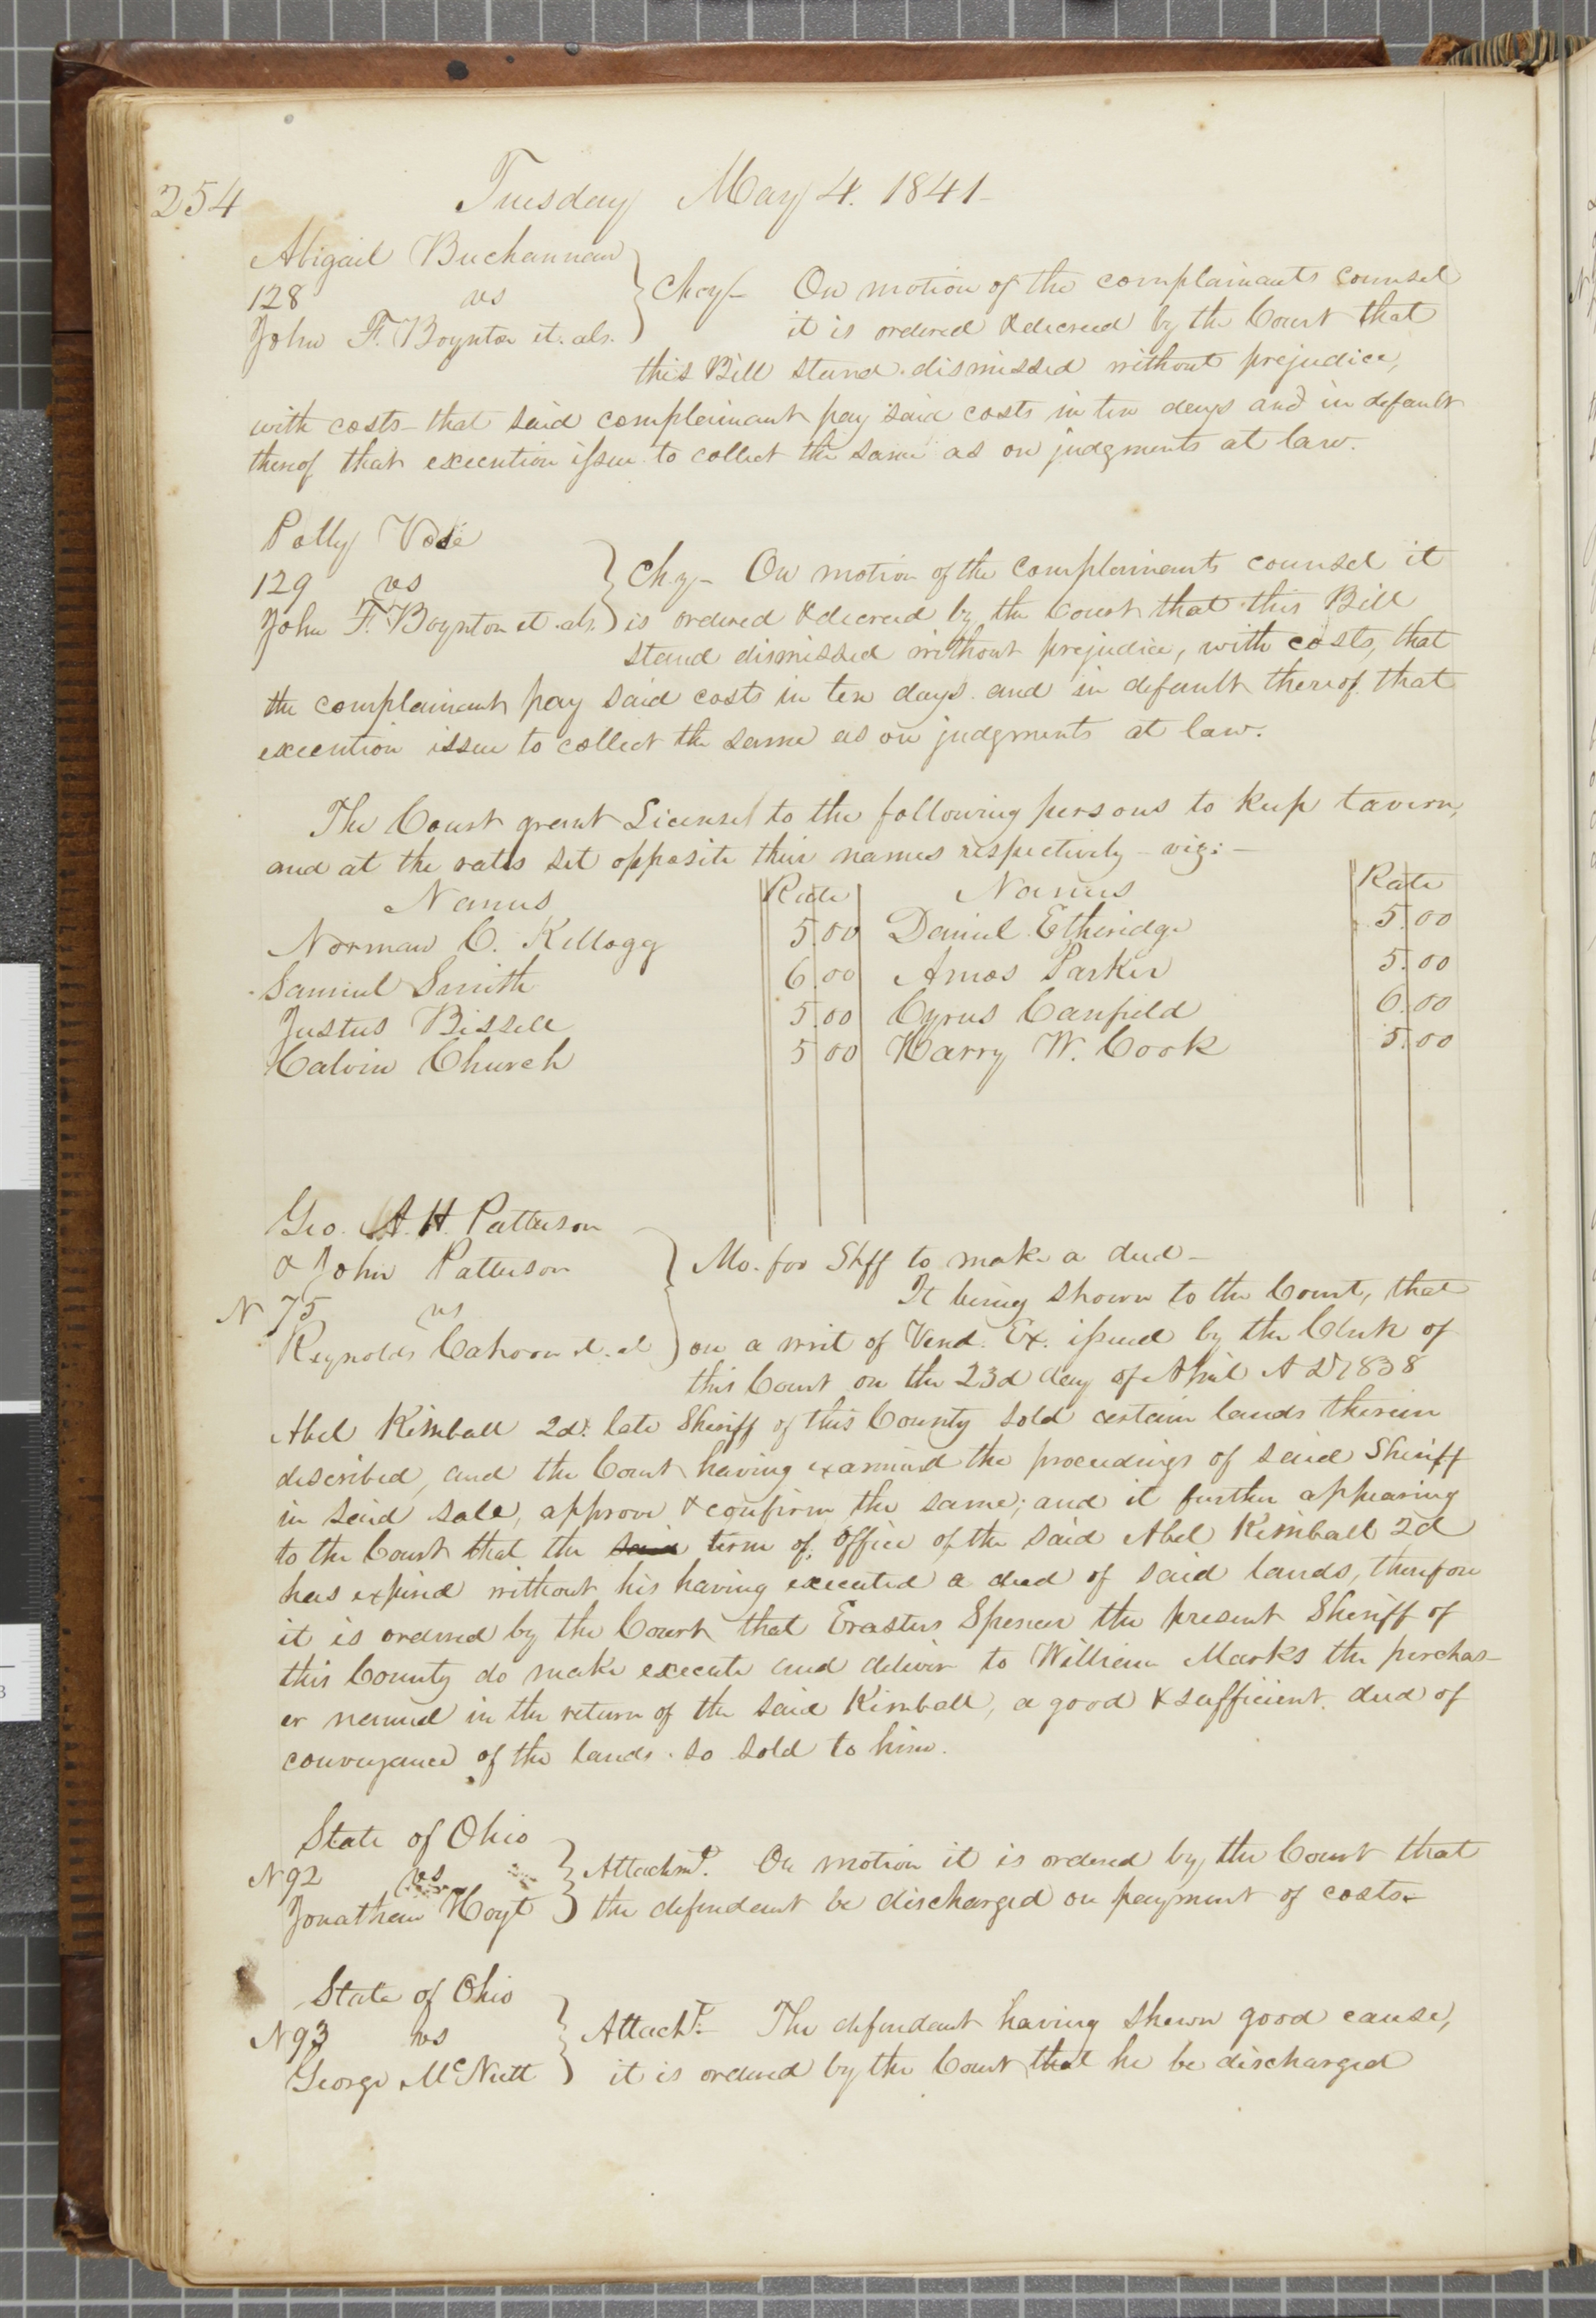 254
Tuesday May 4. 1841
Abigail Buchannan
128 vs
John F. Boynton et. als.
Chcy— On motion of the complainants counsel
it is ordered & decreed by the Court that
this Bill stand dismissed without prejudice,
with costs— that said complainant pay said costs in ten days and in default
thereof that execution issue to collect the same as on judgments at law.
Polly Vose
129 vs
John F. Boynton et als.
Chy— On motion of the complainants counsel it
is ordered & decreed by the Court that this Bill
stand dismissed without prejudice, with costs, that
the complainant pay said costs in ten days and in default thereof that
execution issue to collect the same as on judgments at law.
The Court grant License to the following persons to keep tavern,
and at the rates set opposite their names respectively— viz:—
Names Rate Names Rate
Norman C. Kellogg 5.00 Daniel Etheridge 5.00
Samuel Smith 6.00 Amos Parker 5.00
Justus Bissell 5.00 Cyrus Canfield 6.00
Calvin Church 5 00 Harry W. Cook 5.00
Geo. A. H. Patterson
& John Patterson
N 75 vs
Reynolds Cahoon et. al
Mo. for Shff to make a deed—
It being shown to the Court, that
on a writ of Vend. Ex. issued by the Clerk of
this Court on the 23d day of April A D 1838
Abel Kimball 2d. late Sheriff of this County sold certain lands therein
described, and the Court having examined the proceedings of said Sheriff
in said sale, approve & confirm the same; and it further appearing
to the Court that the said term of office of the said Abel Kimball 2d
has expired without his having executed a deed of said lands, therefore
it is ordered by the Court that Erastus Spencer the present Sheriff of
this County do make execute and deliver to William Marks the purchas-
er named in the return of the said Kimball, a good & sufficient deed of
conveyance of the lands so sold to him.
State of Ohio
N 92 vs
Jonathan Hoyt
Attachmt. On motion it is ordered by the Court that
the defendant be discharged on payment of costs—
State of Ohio
N 93 vs
George McNutt
Attacht.— The defendant having shewn good cause,
it is ordered by the Court that he be discharged